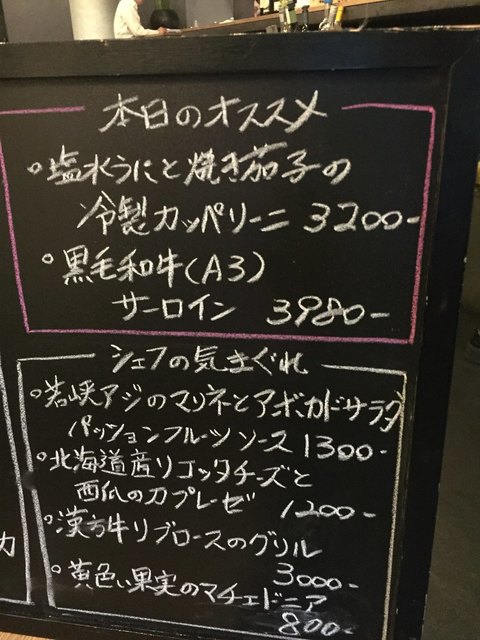 本日のオススメ
塩水うにと焼き茄子の
冷製カッペリーニ 3200-
黒毛和牛(A3)
サーロイン 3980-
シェフの気まぐれ
若狭アジのマリネとアボカドサラダ
パッションフルーツソース 1300-
北海道産リコッタチーズと
西瓜のカプレーゼ 1200-
漢方牛リブロースのグリル
3000-
黄色い果実のマチェドニア
800-
カ